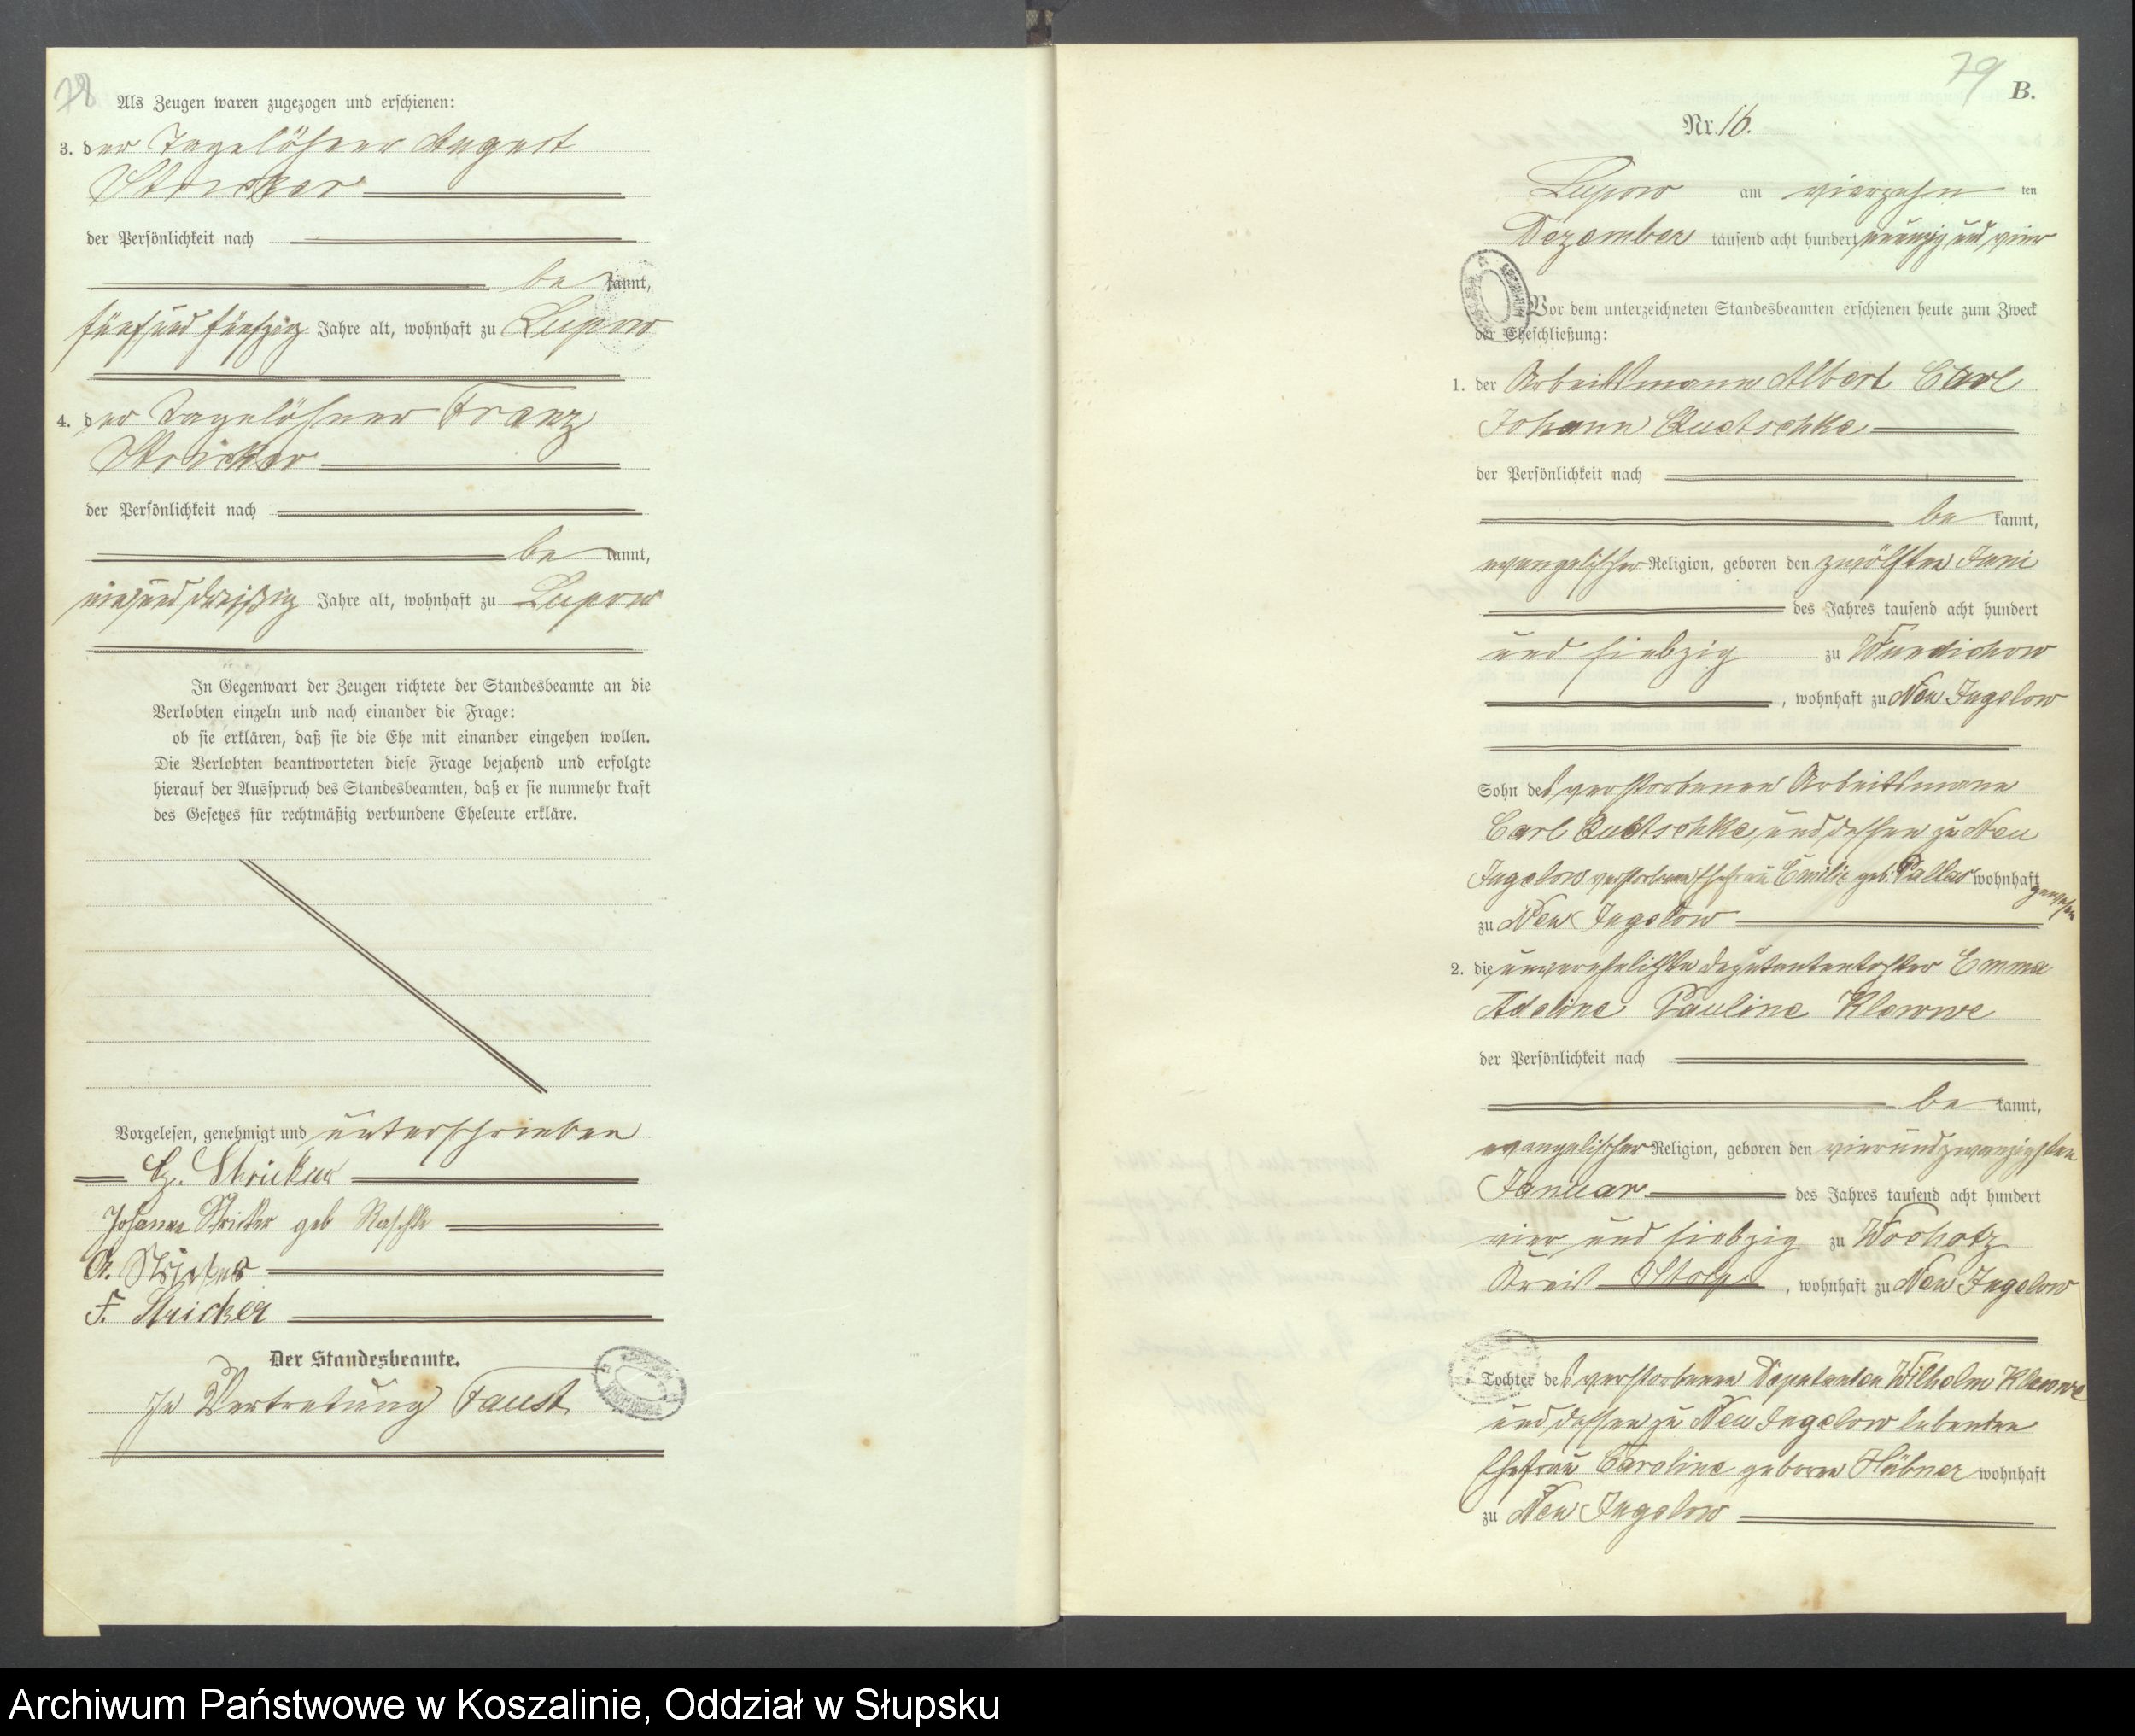 78
Als Zeugen waren zugezogen und erschienen:
3. der Tagelöhner August
Stricker
der Persönlichkeit nach
be kannt,
fünfundfünfzig Jahre alt, wohnhaft zu Lupow
4. der Tagelöhner Franz
Stricker
der Persönlichkeit nach
be kannt,
einunddreißig Jahre alt, wohnhaft zu Lupow
In Gegenwart der Zeugen richtete der Standesbeamte an die
Verlobten einzeln und nach einander die Frage:
ob sie erklären, daß sie die Ehe mit einander eingehen wollen.
Die Verlobten beantworteten diese Frage bejahend und erfolgte
hierauf der Ausspruch des Standesbeamten, daß er sie nunmehr kraft
des Gesetzes für rechtmäßig verbundene Eheleute erkläre.
Vorgelesen, genehmigt und unterschrieben
Stricker
Johanna Stricker geb Raschke
A. Stricker
F. Stricker
Der Standesbeamte.
In Vertretung Faust
79
B.
Nr. 16.
Lupow am vierzehn ten
Dezember tausend acht hundert neunzig und vier
Vor dem unterzeichneten Standesbeamten erschienen heute zum Zweck
der Eheschließung:
1. der Arbeitsmann Albert Carl
Johann Quetschke
der Persönlichkeit nach
be kannt,
evangelischer Religion, geboren den zwölften Juni
des Jahres tausend acht hundert
und siebzig zu Wundichow
, wohnhaft zu Neu Jugelow
Sohn des verstorbenen Arbeitsmann
Carl Quetschke, und dessen zu Neu
Jugelow verstorbenen Ehefrau Emilie geb. Pallas wohnhaft gewesen
zu Neu Jugelow
2. die unverehelichte Deputantentochter Emma
Adeline Pauline Klawwe
der Persönlichkeit nach
be kannt,
evangelischer Religion, geboren den vierundzwanzigsten
Januar des Jahres tausend acht hundert
vier und siebzig zu Wochotz
Kreis Stolp , wohnhaft zu Neu Jugelow
Tochter des verstorbenen Deputanten Wilhelm Klawwe
und dessen zu Neu Jugelow lebenden
Ehefrau Caroline geborne Hübner wohnhaft
zu Neu Jugelow
Archiwum Państwowe w Koszalinie, Oddział w Słupsku